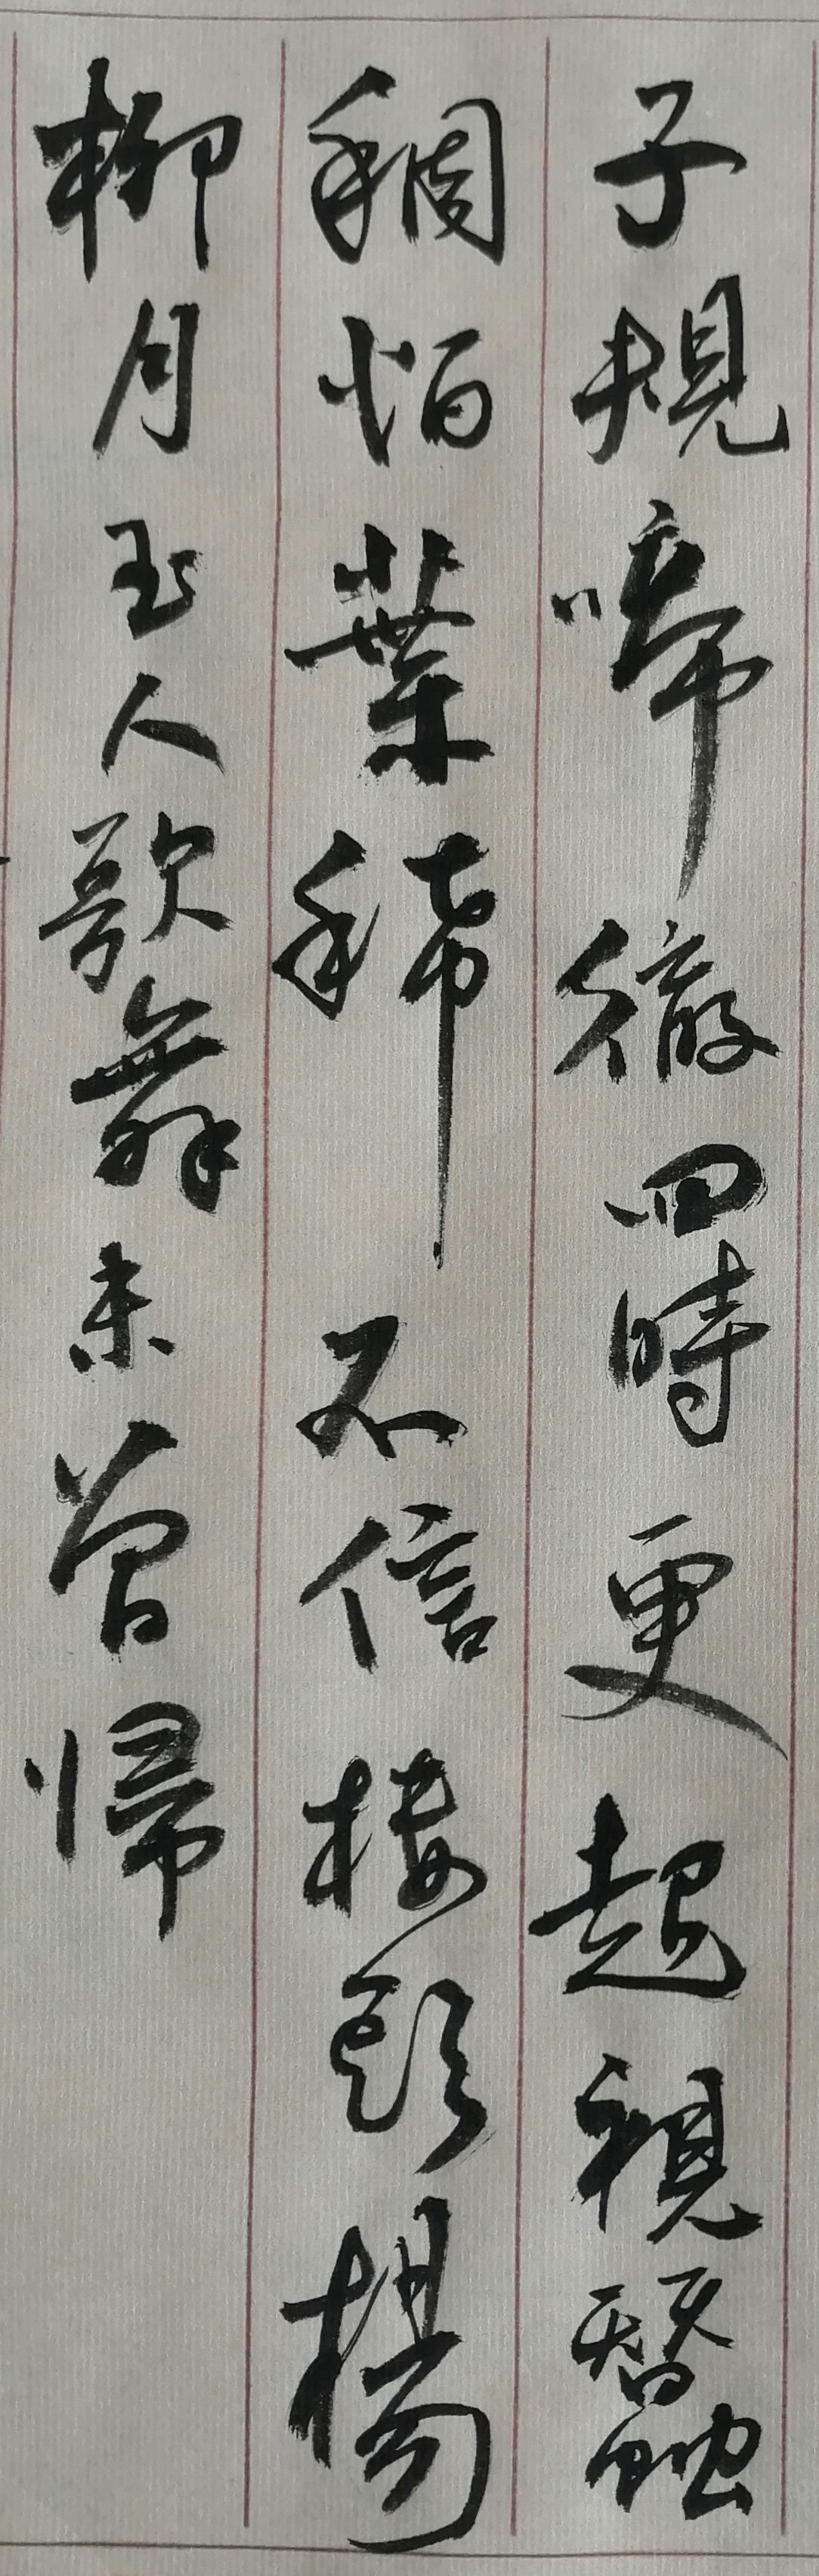 子規啼徹四時更起視蠶
稠怕葉稀不信樓頭楊
柳月玉人歌舞未曾歸